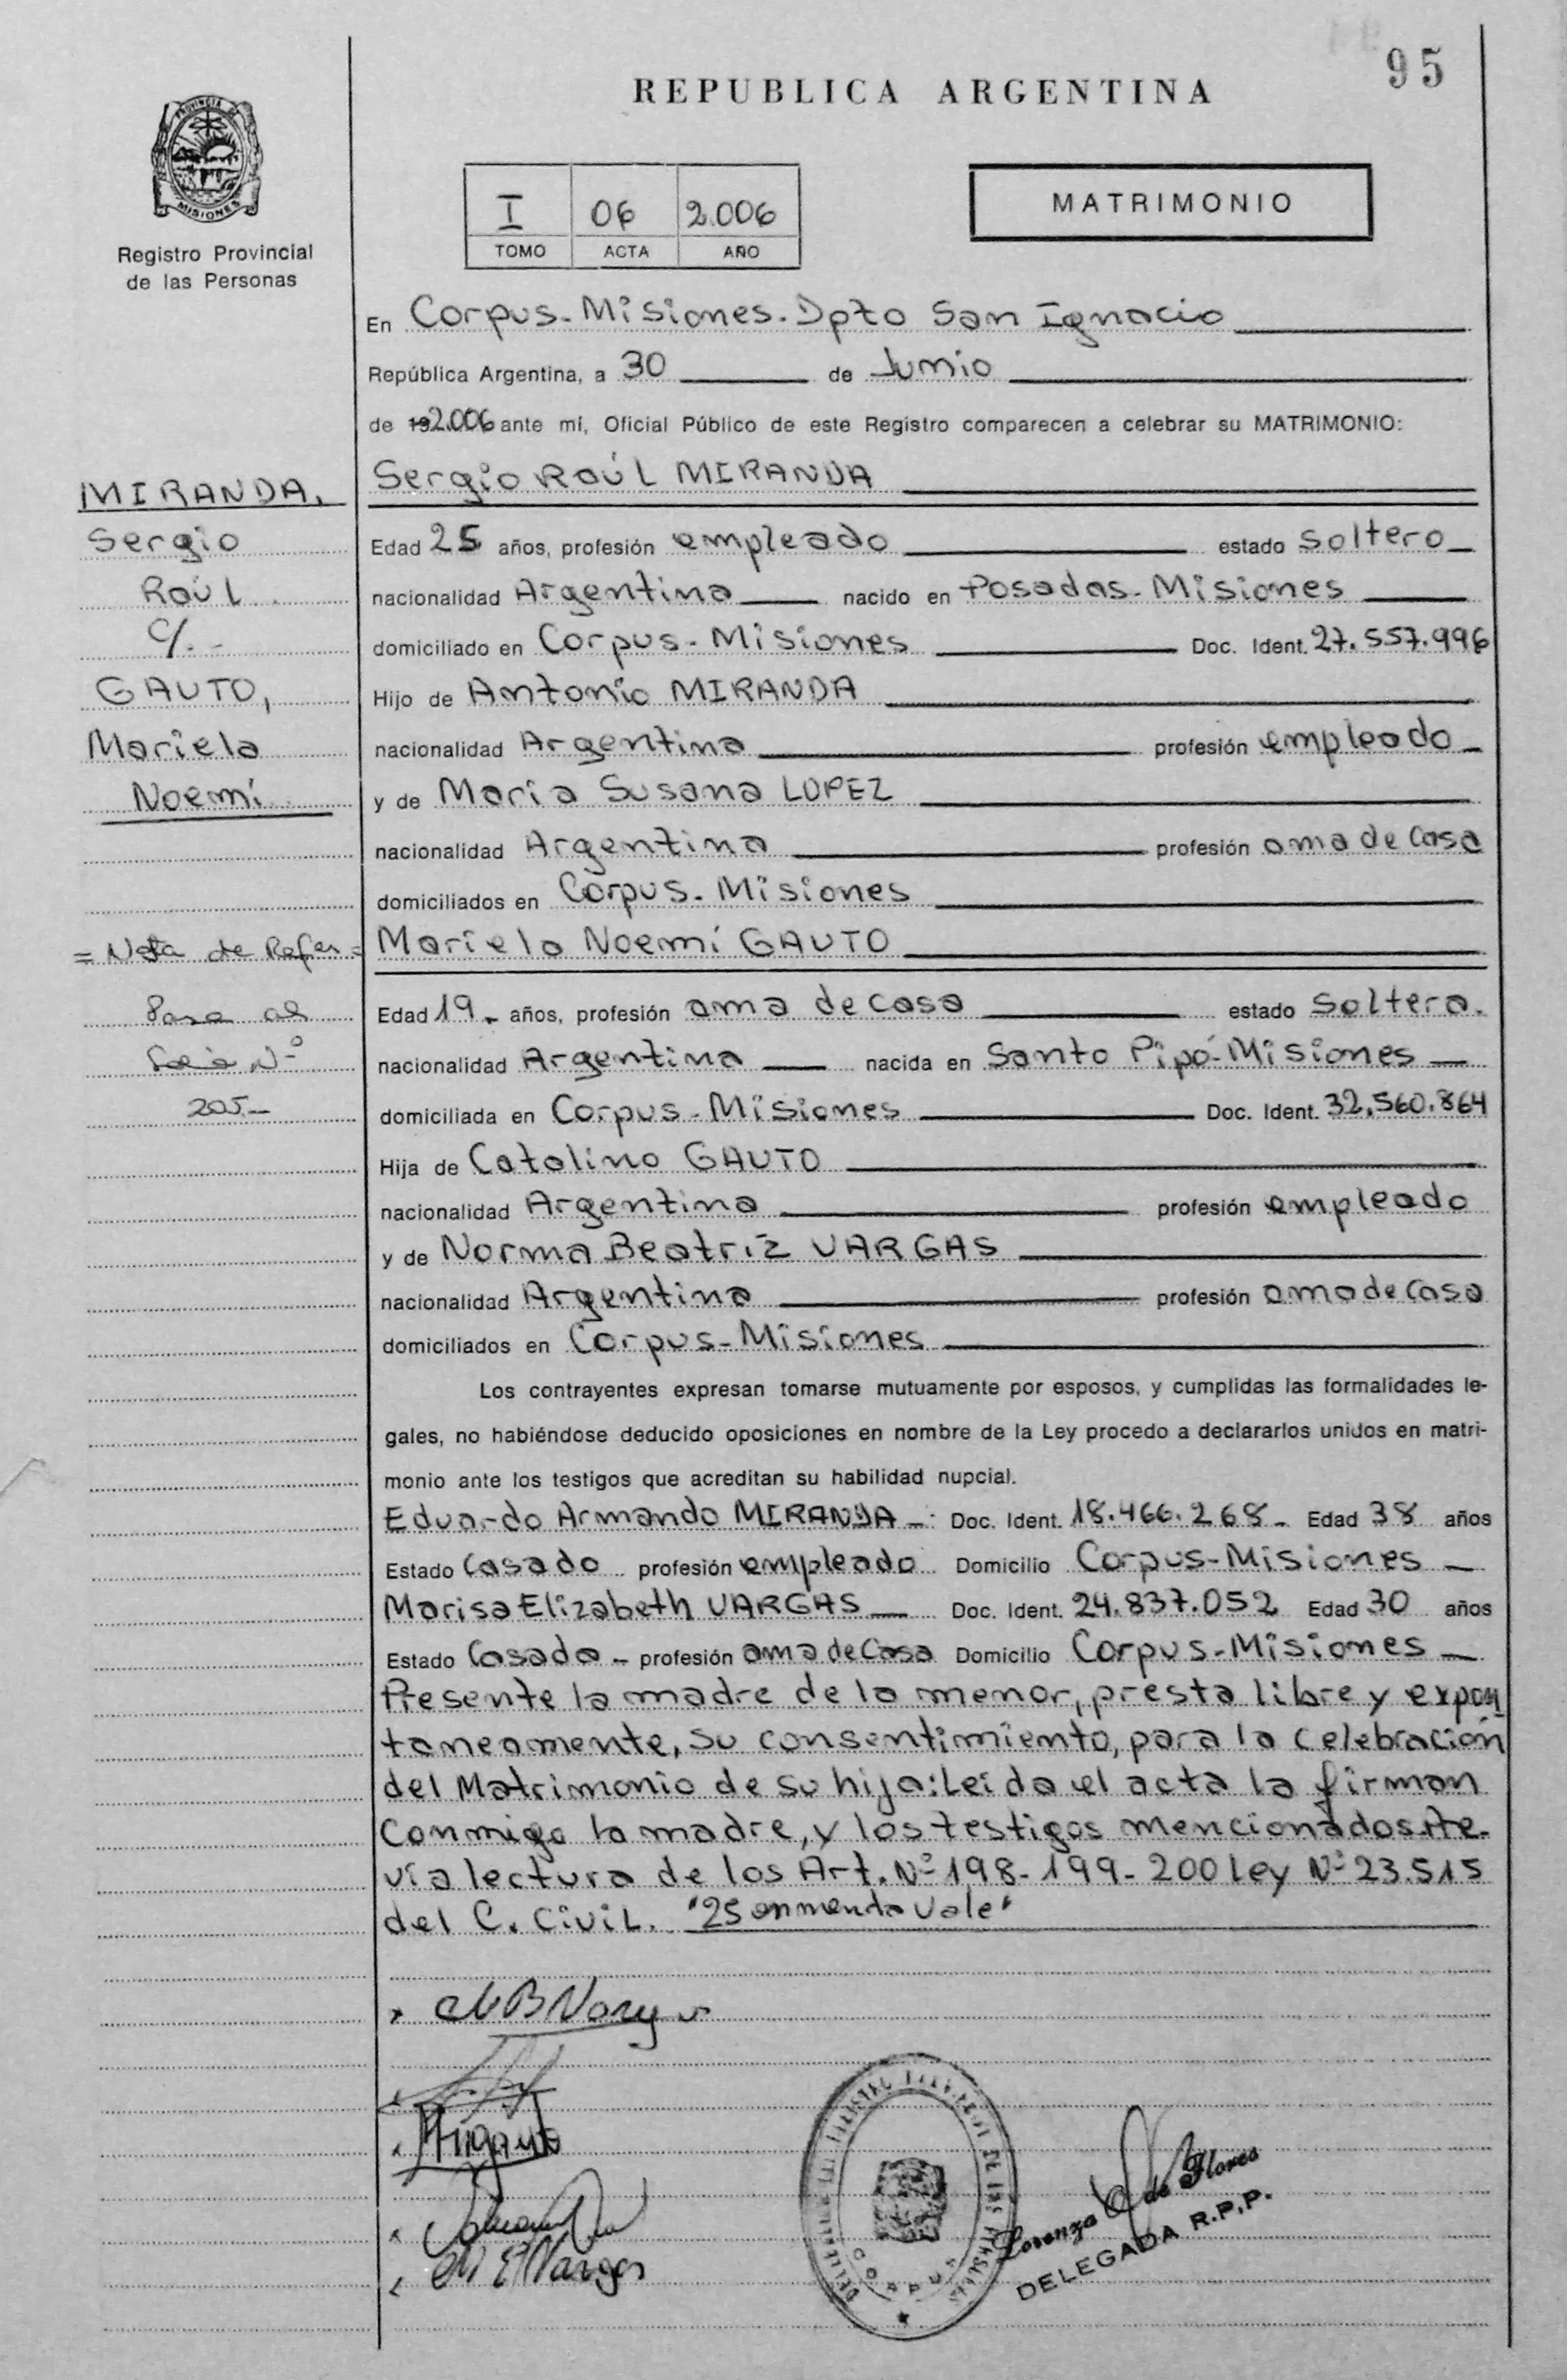 95
REPUBLICA ARGENTINA
PROVINCIA DE
MISIONES
Registro Provincial
de las Personas
I 06 2.006
TOMO ACTA AÑO
MATRIMONIO
En Corpus-Misiones-Dpto San Ignacio
República Argentina, a 30 de Junio
de 192.006 ante mí, Oficial Público de este Registro comparecen a celebrar su MATRIMONIO:
MIRANDA,
Sergio
Raúl
C/.-
GAUTO,
Mariela
Noemí
= Nota de Refer =
Pasa al
Folio Nº
205.-
Sergio Raúl MIRANDA
Edad 25 años, profesión empleado estado soltero
nacionalidad Argentina nacido en Posadas-Misiones
domiciliado en Corpus-Misiones Doc. Ident. 27.557.996
Hijo de Antonio MIRANDA
nacionalidad Argentina profesión empleado
y de María Susana LOPEZ
nacionalidad Argentina profesión ama de casa
domiciliados en Corpus-Misiones
Mariela Noemí GAUTO
Edad 19.- años, profesión ama de casa estado Soltera.
nacionalidad Argentina nacida en Santo Pipó-Misiones
domiciliada en Corpus-Misiones Doc. Ident. 32.560.864
Hija de Catalino GAUTO
nacionalidad Argentina profesión empleado
y de Norma Beatriz VARGAS
nacionalidad Argentina profesión ama de casa
domiciliados en Corpus-Misiones
Los contrayentes expresan tomarse mutuamente por esposos, y cumplidas las formalidades le-
gales, no habiéndose deducido oposiciones en nombre de la Ley procedo a declararlos unidos en matri-
monio ante los testigos que acreditan su habilidad nupcial.
Eduardo Armando MIRANDA Doc. Ident. 18.466.268- Edad 38 años
Estado Casado profesión empleado Domicilio Corpus-Misiones
Marisa Elizabeth VARGAS Doc. Ident. 24.837.052 Edad 30 años
Estado Casada - profesión ama de Casa Domicilio Corpus-Misiones
Presente la madre de la menor, presta libre y expon
taneamente, su consentimiento, para la celebración
del Matrimonio de su hija: Leída el acta la firman
Conmigo la madre, y los testigos mencionados Pre-
via lectura de los Art. Nº 198-199-200 Ley Nº 23.515
del C. Civil. "25 enmenda vale"
M E Vargas
CORPUS
Lorenza de Flores
DELEGADA R.P.P.